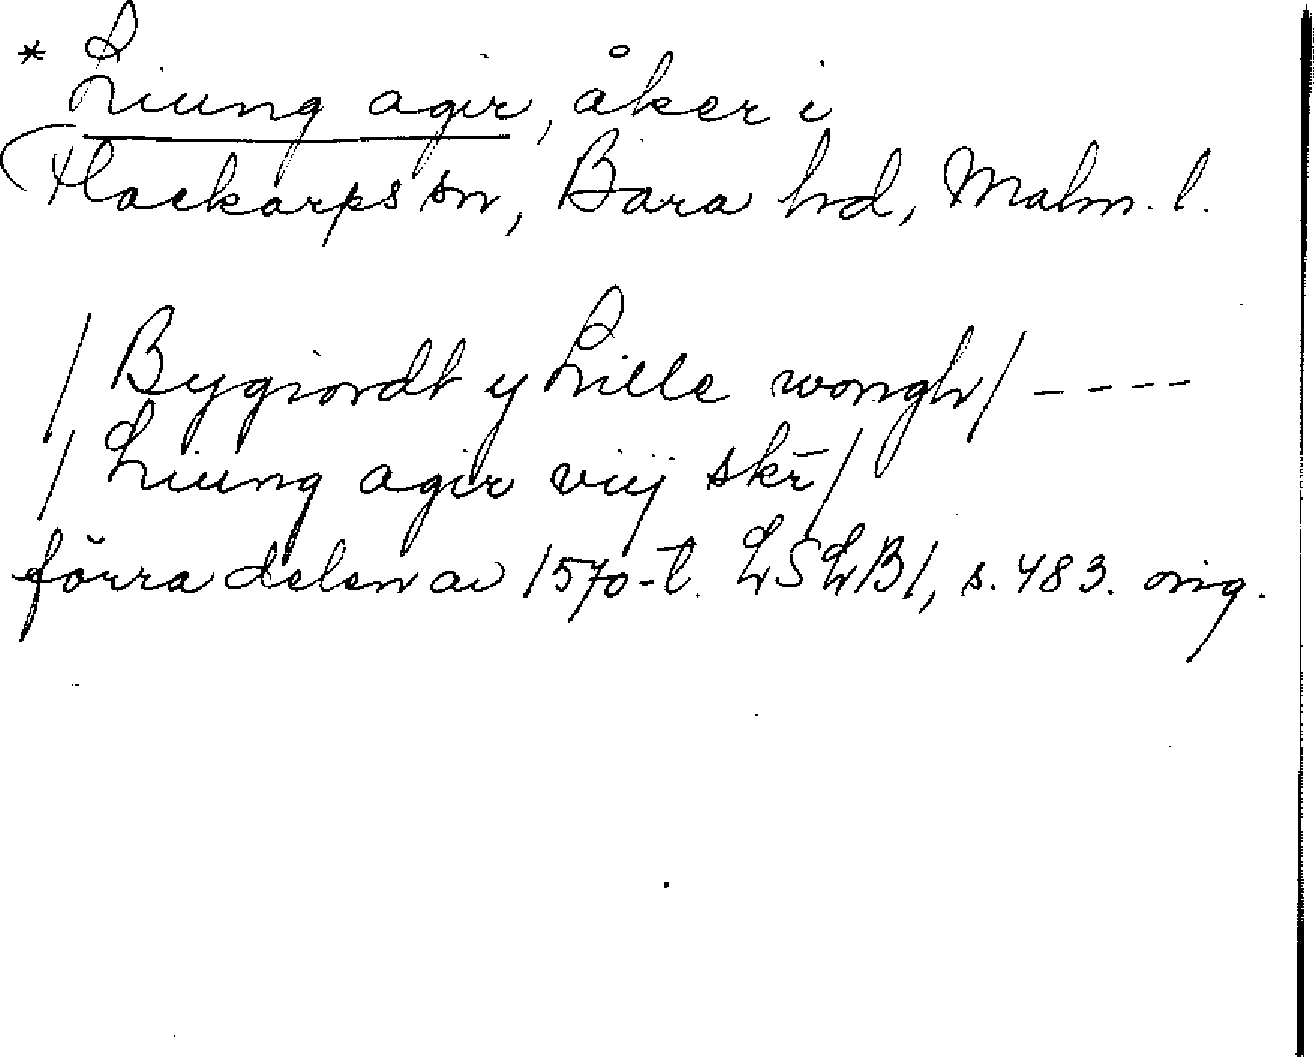 * Liung agir, åker i
Flackarps sn, Bara hd, Malm. l.
/ Bygiordt y Lille wongh / ----
/ Liung agir viij skr̄ /
förra delen av 1570-t. LSLB1, s. 483. orig.